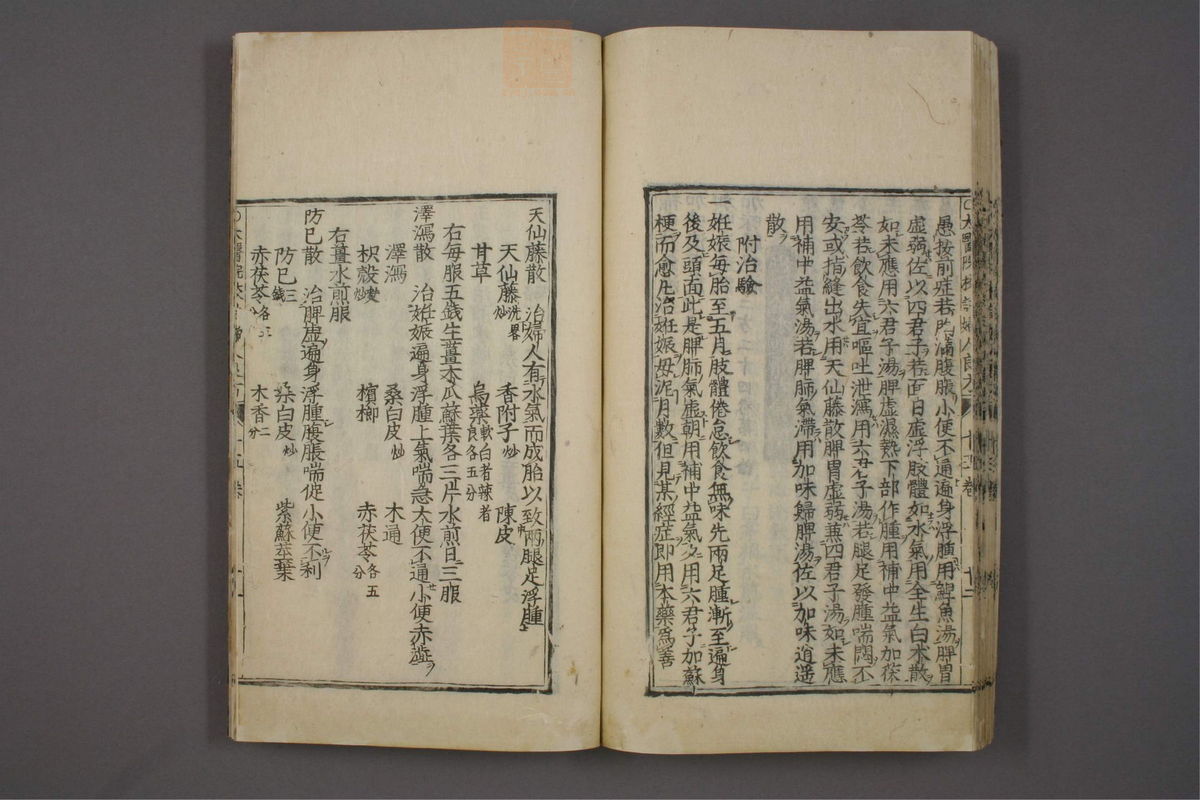 愚按前症若胸滿腹脹小便不通遍身浮腫用鯉魚湯脾胃
虛弱佐以四君子若面目虛浮肢體如水氣用全生白朮散
如未應用六君子湯脾虛濕熱下部作腫用補中益氣加茯
苓若飲食失宜嘔吐泄瀉用六君子湯若腿足發腫喘悶不
安或指縫出水用天仙藤散脾胃虛弱兼四君子湯如未應
用補中益氣湯若脾肺氣滯用加味歸脾湯佐以加味逍遥
散
附治驗
妊娠每胎至五月肢體倦怠飲食無味先兩足腫漸至遍身
後及頭面此是脾肺氣虛朝用補中益氣夕用六君子加蘇
梗而愈凡治妊娠毋泥月數但見某經症即用本藥爲善
十二
天仙藤散 治婦人有水氣而成胎以致兩腿足浮腫
天仙藤洗畧炒 香附子炒 陳皮
甘草 烏藥軟白者辣者良各五分
右每服五錢生薑木瓜蘇葉各三片水煎日三服
澤瀉散 治妊娠遍身浮腫上氣喘急大便不通小便赤澁
澤瀉 桑白皮炒 木通
枳殼麩炒 檳榔 赤茯苓各五分
右薑水煎服
防已散 治脾虛遍身浮腫腹脹喘促小便不利
防已三錢 桑白皮炒 紫蘇莖葉
赤茯苓各三分 木香二分